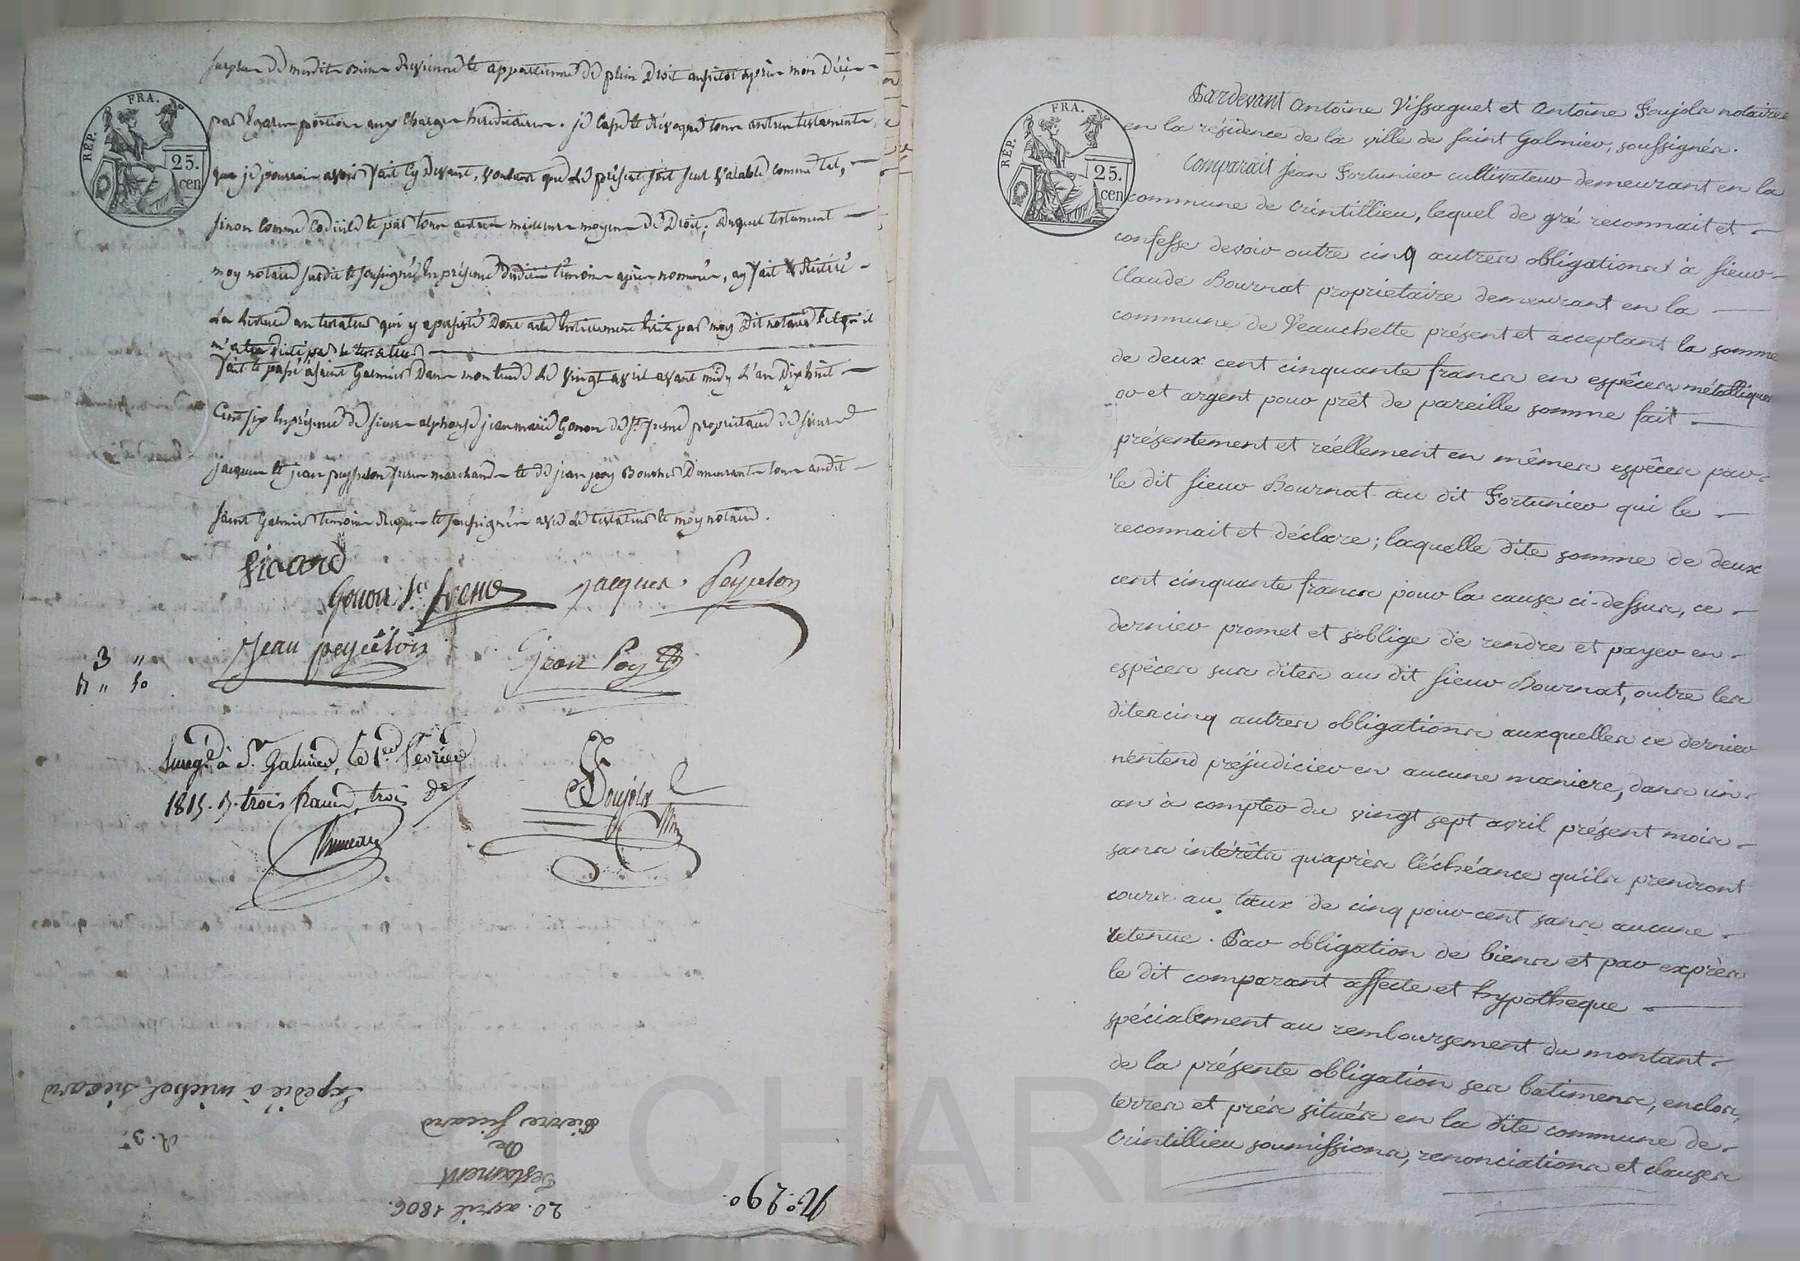 surplus de mesdits biens Reviennent et appartiennent de plein Droit aussitot après mon Décès
par Egales portions aux charges héréditaires. je casse et Révoque tous autres testaments
que je pourrais avoir fait cy Devant, voulant que le présent soit seul valable comme tel,
sinon comme Codicille et par tous autres meilleurs moyens de Droit; duquel testament
moy notaire susdit et soussigné En présence desdits témoins après nommés, ay fait & Réitéré
La lecture au testateur qui y a persisté Dont acte
m'a été dicté par le testateur
fait et passé à Saint Galmier Dans mon Etude le vingt avril avant midy L'an Dix huit
Cent six En présence de sieurs alphonse jean marie Gonon de St. fresne propriétaire de sieurs
jacques et jean peysselon frères marchands et de jean poy Boucher Demeurants tous audit
Saint Galmier témoins Requis et soussignés avec le testateur et moy notaire.
REP. FRA.
25. cen
Sicard
Gonon St. fresne
jacques Peyselon
jean peyselon
jean Poy
3 "
" 30
Enregé à St. Galmier, le 1er février
1815. R. trois francs, trois
Soujols
Expédié à michel sicard
Pierre Sicard
De
Testament
20. avril 1806.
N.o 290.
REP. FRA.
25. cen
Pardevant Antoine Vissaguet et Antoine Soujols notaires
en la résidence de la ville de Saint Galmier, soussignés.
Comparait Jean Fortunier cultivateur demeurant en la
commune de Crintillieu, lequel de gré reconnait et
confesse devoir outre cinq autres obligations à sieur
Claude Bournat propriétaire demeurant en la
commune de Veauchette présent et acceptant la somme
de deux cent cinquante francs en espèces métalliques
or et argent pour prêt de pareille somme fait
présentement et réellement en mêmes espèces par
le dit sieur Bournat au dit Fortunier qui le
reconnait et déclare; laquelle dite somme de deux
cent cinquante francs pour la cause ci-dessus, ce
dernier promet et s'oblige de rendre et payer en
espèces sus dites au dit sieur Bournat, outre les
dites cinq autres obligations auxquelles ce dernier
n'entend préjudicier en aucune maniere, dans un
an à compter du vingt sept avril présent mois
sans intérêts qu'après l'échéance qu'ils prendront
cours au taux de cinq pour cent sans aucune
retenue. Par obligation de biens et par exprès
le dit comparant affecte et hypotheque
spécialement au remboursement du montant
de la présente obligation ses batimens, enclos,
terres et prés situés en la dite commune de
Crintillieu soumissions, renonciations et clauses
CHAREYRON